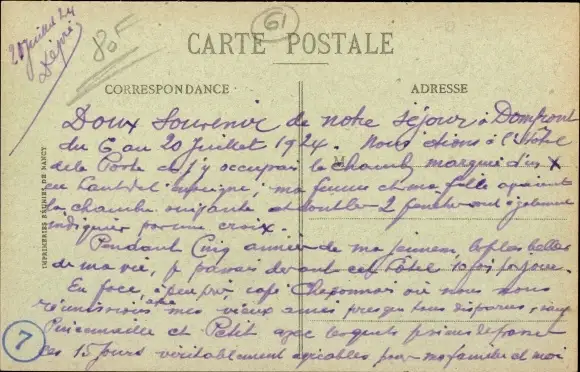 20 juillet 24
61
80F
CARTE POSTALE
CORRESPONDANCE
ADRESSE
Doux Souvenir de notre séjour à Domfront
du 6 au 20 Juillet 1924. Nous étions à l'Hôtel
de la Poste et j'y occupais la chambre marquée d'un X
en haut de l'enseigne ; ma femme et ma fille avaient
la chambre suivante et dont les 2 fenêtres sont également
indiquées par une croix.
Pendant Cinq années de ma jeunesse, les plus belles
de ma vie, je passais devant cet Hôtel 10 fois par jour.
En face, à peu près, café où nous nous
réunissions mes vieux amis presque tous disparus, sauf
et Petit avec lesquels
ces 15 jours véritablement agréables pour ma famille et moi
M
IMPRIMERIES RÉUNIES DE NANCY
7